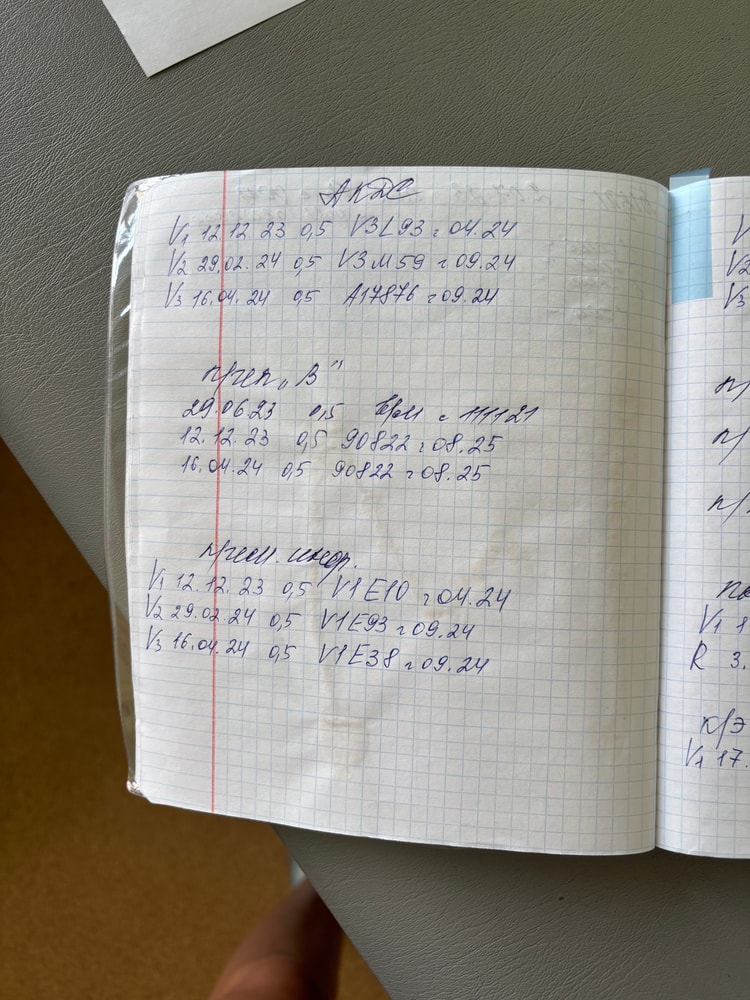 АКДС
V1 12.12.23 0,5 V3L93 г 04.24
V2 29.02.24 0,5 V3M59 г 09.24
V3 16.04.24 0,5 A17876 г 09.24
п/геп „В"
29.06.23 0,5 с 111121
12.12.23 0,5 90822 г 08.25
16.04.24 0,5 90822 г 08.25
п/гем. инф.
V1 12.12.23 0,5 V1E10 г 04.24
V2 29.02.24 0,5 V1E93 г 09.24
V3 16.04.24 0,5 V1E38 г 09.24
V2
V3
п/
п/
V1
R 3.
к/э
V1 17.